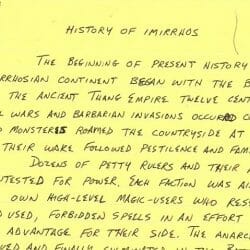 HISTORY OF IMIRRHOS
THE BEGINNING OF PRESENT HISTORY
RRHOSIAN CONTINENT BEGAN WITH THE B
THE ANCIENT THANG EMPIRE TWELVE CENT
L WARS AND BARBARIAN INVASIONS OCCURED
D MONSTERS ROAMED THE COUNTRYSIDE AT
THEIR WAKE FOLLOWED PESTILENCE AND FAM
DOZENS OF PETTY RULERS AND THEIR A
NTESTED FOR POWER. EACH FACTION WAS AI
OWN HIGH-LEVEL MAGIC-USERS WHO RES
D USED, FORBIDDEN SPELLS IN AN EFFORT
ADVANTAGE FOR THEIR SIDE. THE ANAR